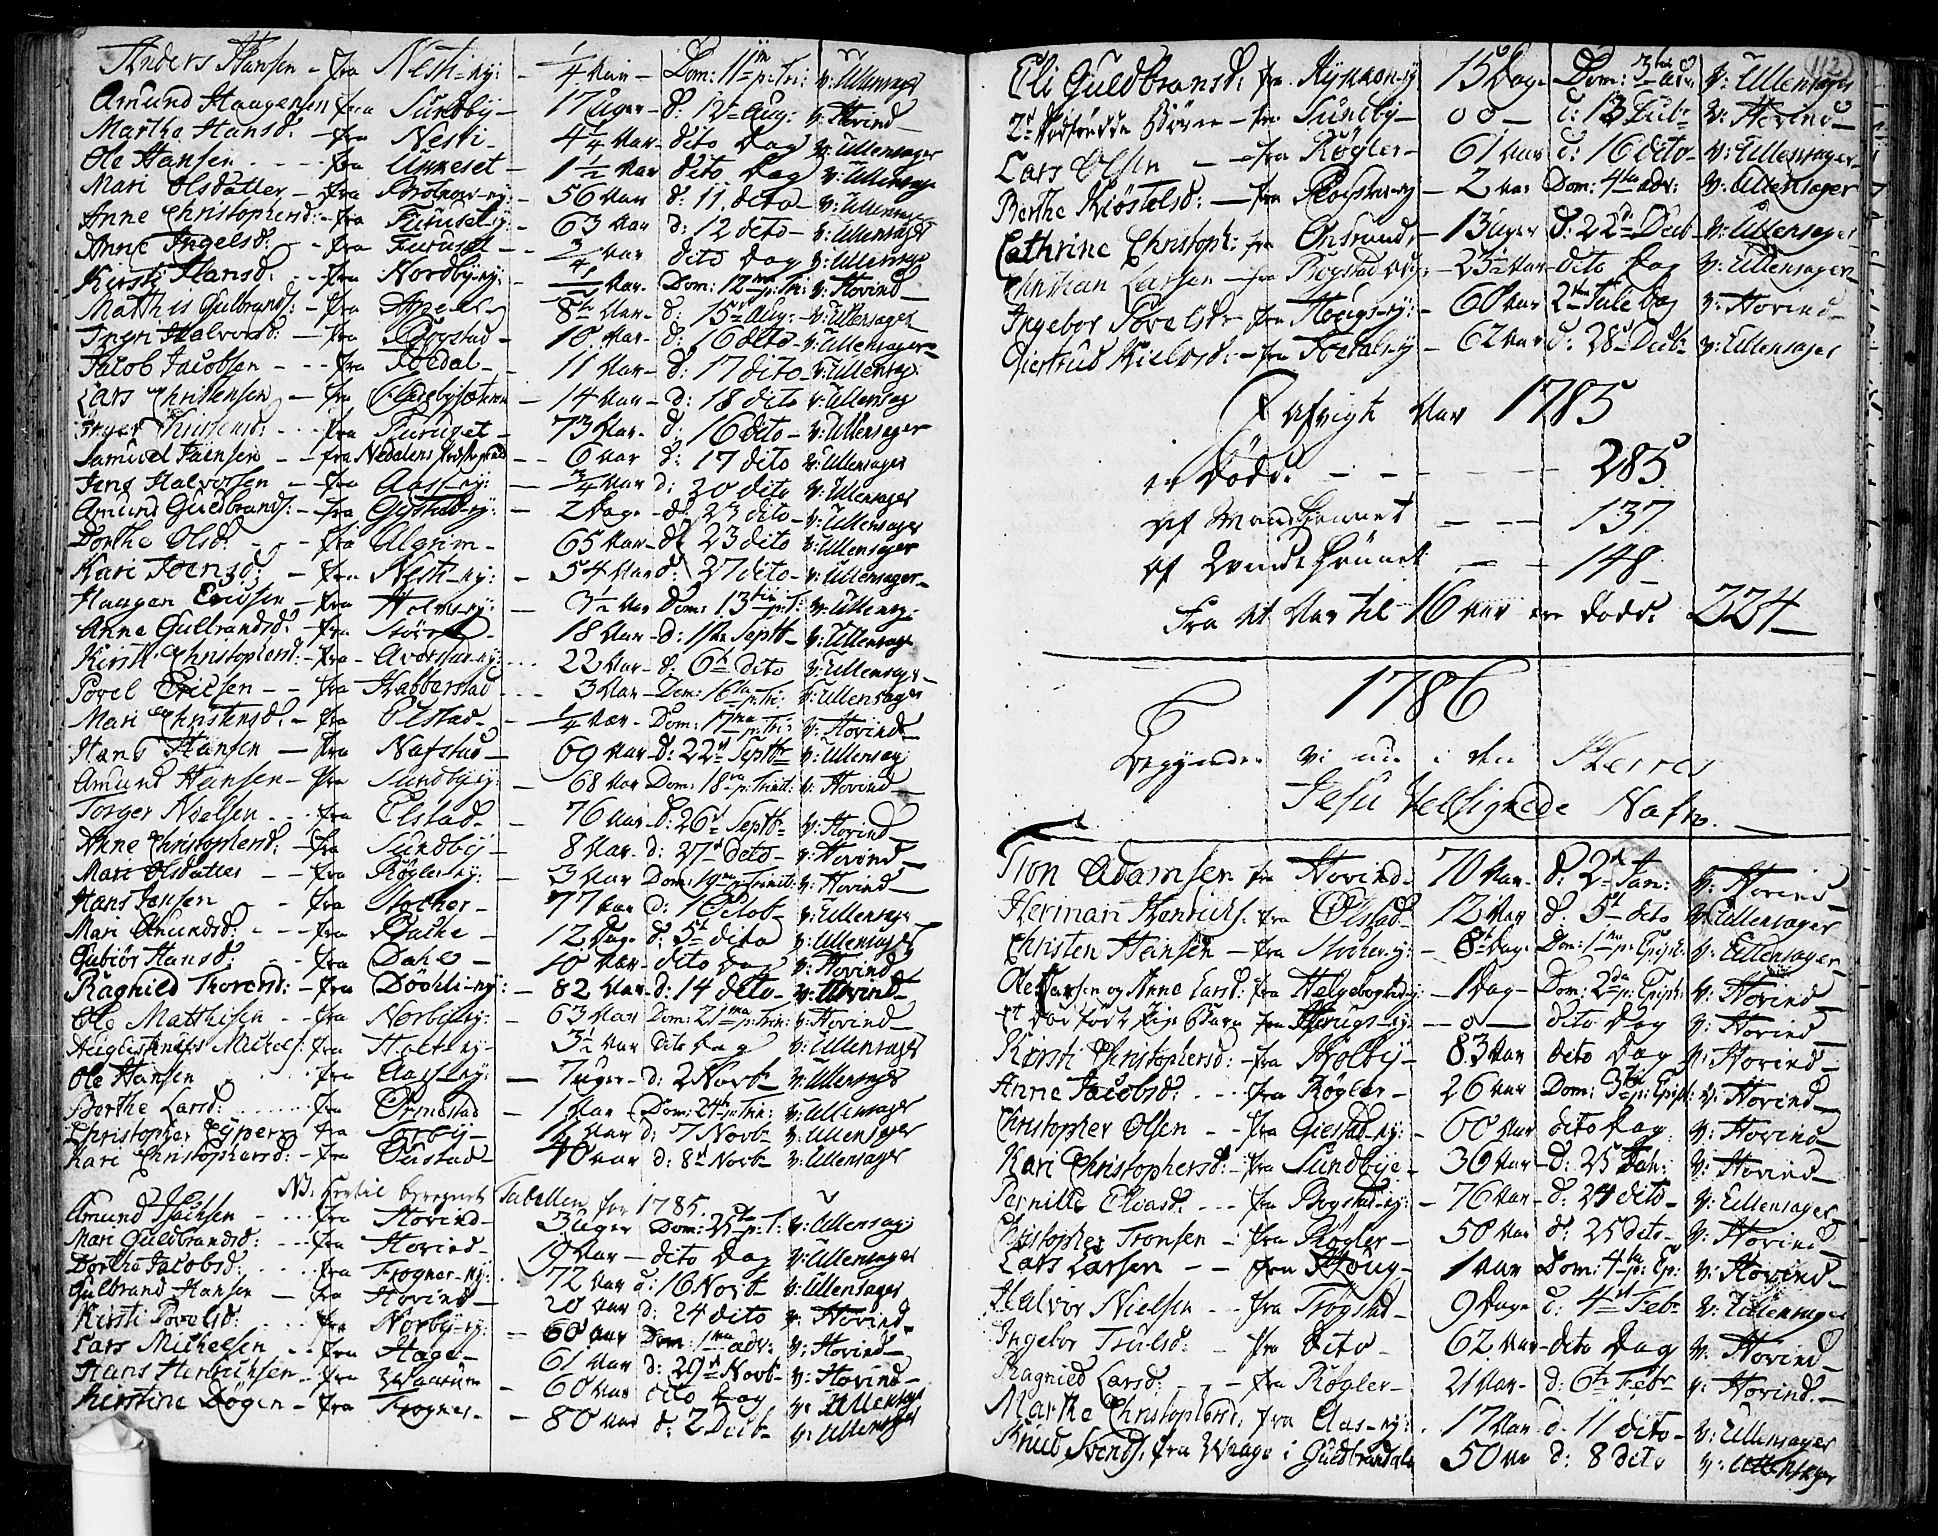 Anders Hansen - fra Nesti-ej: - 1/4 Aar - Dom: 11te p: Tri: v: Ullensager
Amund Haagensen fra Sundby - 17 Uger - d: 12te Aug: v: Hovind
Marthe Hansd: - fra Nesti - 4 1/4 Aar - dito Dag v: Ullensager
Ole Hansen - fra 1 1/2 Aar dito Dag v: Ullensager
Mari Olsdatter - fra 56 Aar d: 11 dito v: Ullensager
Anne Christophersd: - fra Furuset-ej: - 63 Aar d: 12 dito - v: Ullensager
Anne Ingelsd: - fra Furuset - 3/4 Aar dito Dag v: Ullensager
Kirsti Hansd: - fra Nordby-ej: - 1/2 Aar - Dom: 12te p: Tri: v: Hovind
Matthis Gulbrands: - fra 8 1/2 Aar - d: 15de Aug: - v: Ullensager
Ingri Halvorsd: - fra Bogstad - 10 Aar - d: 16 dito - v: Ullensager
Jacob Jacobsen - fra - 11 Aar - d: 17 dito - v: Ullensager
Lars Christensen - fra - 14 Aar - d: 18 dito v: Ullensag
Inger - fra Furuset - 73 Aar - d: 16 dito - v: Ullensager
Samuel Jaensen - fra Nedalens - 6 Aar d: 17 dito v: Ullensager
Jens Halvorsen - fra Aas-ej: - 3/4 Aar d: 20 dito v: Ullensager
Amund Guldbrands: - fra Gystad-ej: - 2 Dage - d: 23 dito - v: Ullensager
Dorthe Olsd: - fra Algrim - 65 Aar - d: 23 dito v: Ullensager
Kari Joensd: - fra Nesti-ej: - 54 Aar d: 27 dito - v: Ullensager
Haagen Ericsen - fra Holm-ej: - 3 1/2 Aar Dom: 13de p: T: v: Ullensag:
Anne Gulbrandsd: - fra - 18 Aar - d: 1te Septb - v: Ullensager
Kirsti Christophersd: - fra - 22 Aar - d: 6te dito v: Ullensager
Povel Ericsen - fra Habberstad - 3 Aar - Dom: 16te p: Tri: v: Ullensager
Mari Christensd: - fra Elstad - 1/4 Aar - Dom: 17ma p: Tri: v: Hovind
Hans Hansen - fra Nafstad - 69 Aar - d: 22de Septb v: Ullensag
Amund Hansen - fra Sundby-ej: - 68 Aar Dom: 18va p: Trinit: v: Hovind
Torger Nielsen - fra Elstad - 76 Aar - d: 26de Septb - v: Hovind
Anne Christophersd: - fra Sundby - 8 Aar - d: 27de dito - v: Hovind
Mari Olsdatter - fra Røgler-ej: 3 Aar Dom: 19na p: Trinit: v: Hovind
Hans Jensen - fra Mocher - 77 Aar d: 1 Octob - v: Ullensager
Mari Amundsd: - fra Bache - 12 Dage d: 5te dito v: Ullensager
Gubiør Hansd: - fra Dahl - 10 Aar - dito Dag v: Hovind
Ragnild Thorersd: - fra Døhli-ej: - 82 Aar - d: 14 dito - v: Hovind
Ole Matthisen - fra Norby-ej: - 63 Aar Dom: 21ma p: Trin: v: Hovind
Augustinus Michels: fra Holm-ej - 3 1/2 Aar Dito Dag v: Ullensager
Ole Hansen - fra Aas-ej: - 7 Uger - d: 2 Novb - v: Ullensager
Berthe Larsd: - fra Ormestad - 1 Aar - Dom: 24te p: Trin: v: Ullensager
Christopher - fra Sørby - 11 Aar d: 7 Novb - v: Ullensager
Kari Christophersd: - fra - 40 Aar d: 8de Novb - v: Ullensager
NB. Hertil beregnet Tabellen for 1785.
Amund Isachsen - fra Hovind - 3 Uger Dom: 25te p: T: v: Ullensag:
Mari Guldbrandsd: - fra Hovind - 19 Aar - dito Dag v: Ullensager
Dorthe Jacobsd: - fra Frogner-ej: 72 Aar d: 16 Novb - v: Ullensager
Gulbrand Hansen - fra Hovind - 20 Aar d: 24 dito v: Hovind
Kirsti Povelsd: - fra Norby-ej: - 60 Aar Dom: 1ma adv: v: Hovind
Lars Michelsen - fra Hage - 61 Aar d: 29de Novb - v: Hovind
Hans Henrichsen - fra - 60 Aar dito Dag v: Ullensager
Kirstine Døgen - fra Frogner - 80 Aar d: 2 Decb - v: Ullensager
112
Eli Guldbransd: fra - 15 Dage Dom: 3tia adv: v: Ullensager
2de Dødfødde Børn - fra Sundby - 0 0 - d: 13 v: Hovind
Lars Olsen - fra Røgler - 61 Aar d: 16 dito - v: Ullensager
Berthe Kiøstelsd: - fra - 2 Aar Dom: 4ta adv: v: Ullensager
Cathrine Christoph: fra Onsrud - 13 Uger d: 22de Decb - v: Ullensager
Christian Larsen - fra Bogstad-ej: - 23 1/2 Aar - dito Dag v: Ullensager
Ingebor Povelsd - fra Haugs-ej: - 60 Aar 2den Juledag v: Hovind
Giertrud Kieldsd: - fra - 62 Aar d: 28de Decb v: Ullensager
I Afvigte Aar 1785
er Døde - 285
af Mandkiønnet - 137
af Qvindekiønnet - 148
Fra et Aar til 16 Aar ere døde 224
1786
Begynder vi nu i den Herres
Jesu Velsignede Nafn.
Tron Adamsen fra Hovind - 70 Aar - d: 2de Jan: v: Hovind
Herman Henrichs: fra Ølstad 12 Aar d: 5te dito v: Ullensager
Christen Hansen - fra Mocher-ej: - 8te Dage - Dom: 1ma p: Epiph: v: Ullensager
Ole Larsen og Anne Larsd: fra - 1 Dag - Dom: 2da p: Epiph: v: Hovind
et dødfødt Pige Barn fra Haugs-ej: - 0 - dito Dag v: Hovind
Kirsti Christophersd: - fra Holby - 83 Aar dito Dag v: Hovind
Anne Jacobsd: - fra Røgler - 26 Aar Dom: 3tia p: Epiph: v: Hovind
Christopher Olsen - fra Giestad-ej: - 60 Aar dito Dag v: Hovind
Kari Christophersd: - fra Sundbye - 36 Aar - d: 25 Jan: v: Hovind
Pernille Eliasd: - fra Bogstad-ej: - 76 Aar - d: 24 dito - v: Ullensager
Christopher Tronsen - fra Røgler - 50 Aar d: 25 dito - v: Hovind
Lars Larsen - fra Houg - 1 Aar Dom: 4ta p: Ep: v: Hovind
Halvor Nielsen - fra Trøgstad - 9 Dage d: 4de Feb: v: Ullensager
Ingebor Truelsd: - fra Dito - 62 Aar - dito Dag v: Hovind
Ragnild Larsd: - fra Røgler - 21 Aar - d: 6te Febr v: Hovind
Marthe Christophersd: fra Aas-ej: - 17 Aar d: 11 dito - v: Ullensager
Knud Svends: fra Waage i Guldbrandsdal 50 Aar d: 8 dito v: Ullensager